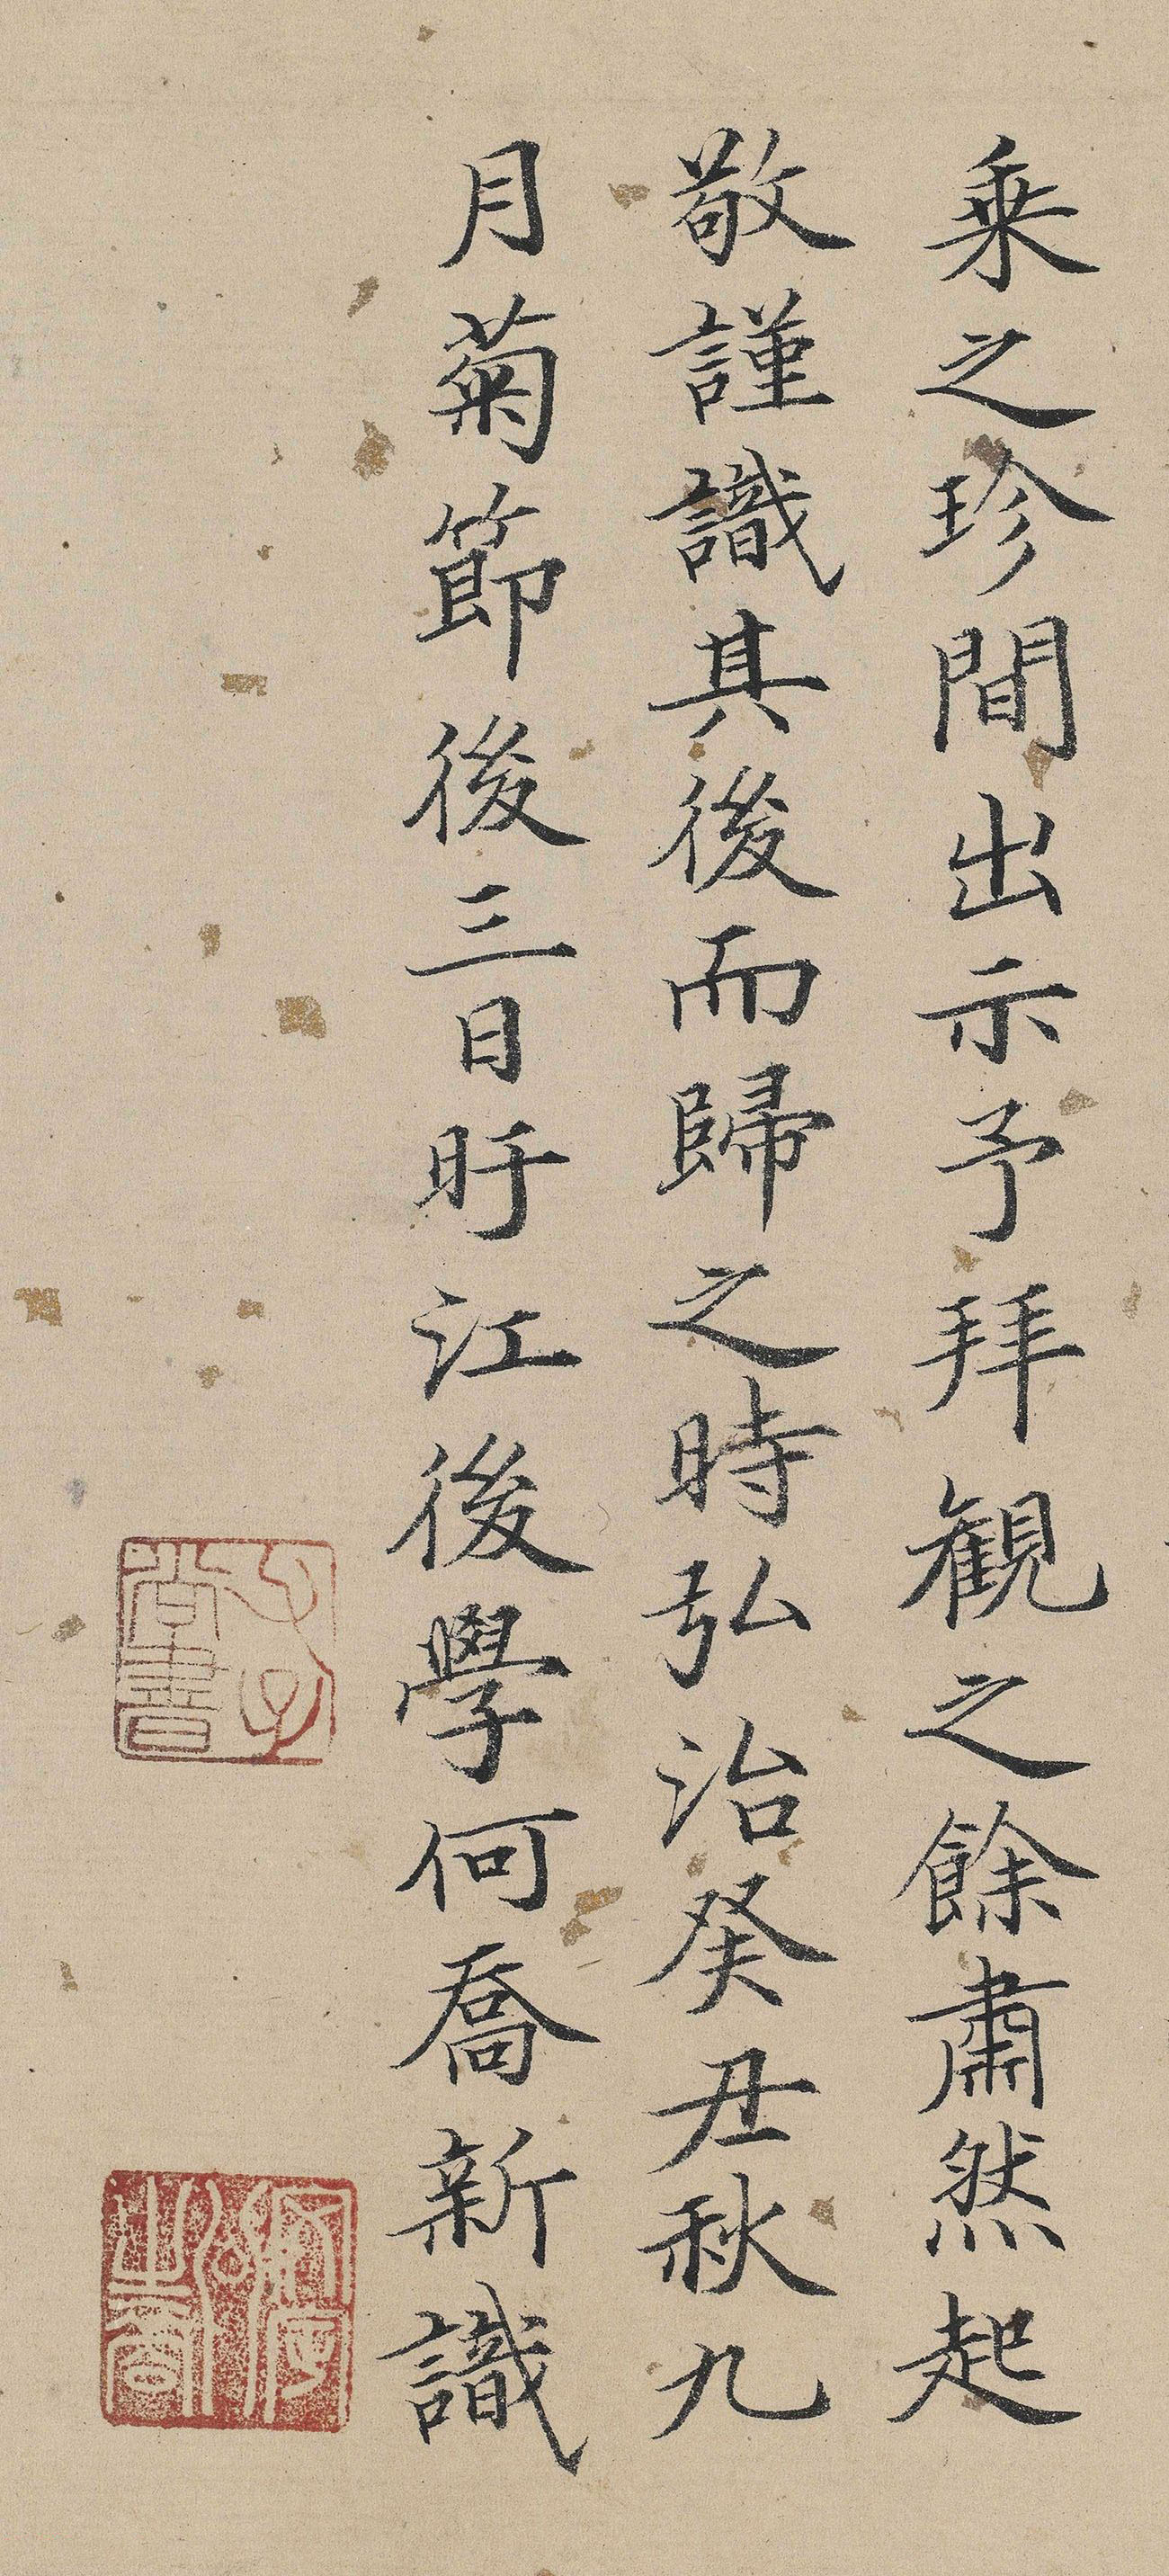 乗之珍間出示予拜觀之餘肅然起
敬謹識其後而歸之時弘治癸丑秋九
月菊節後三日盱江後學何喬新識
尚書